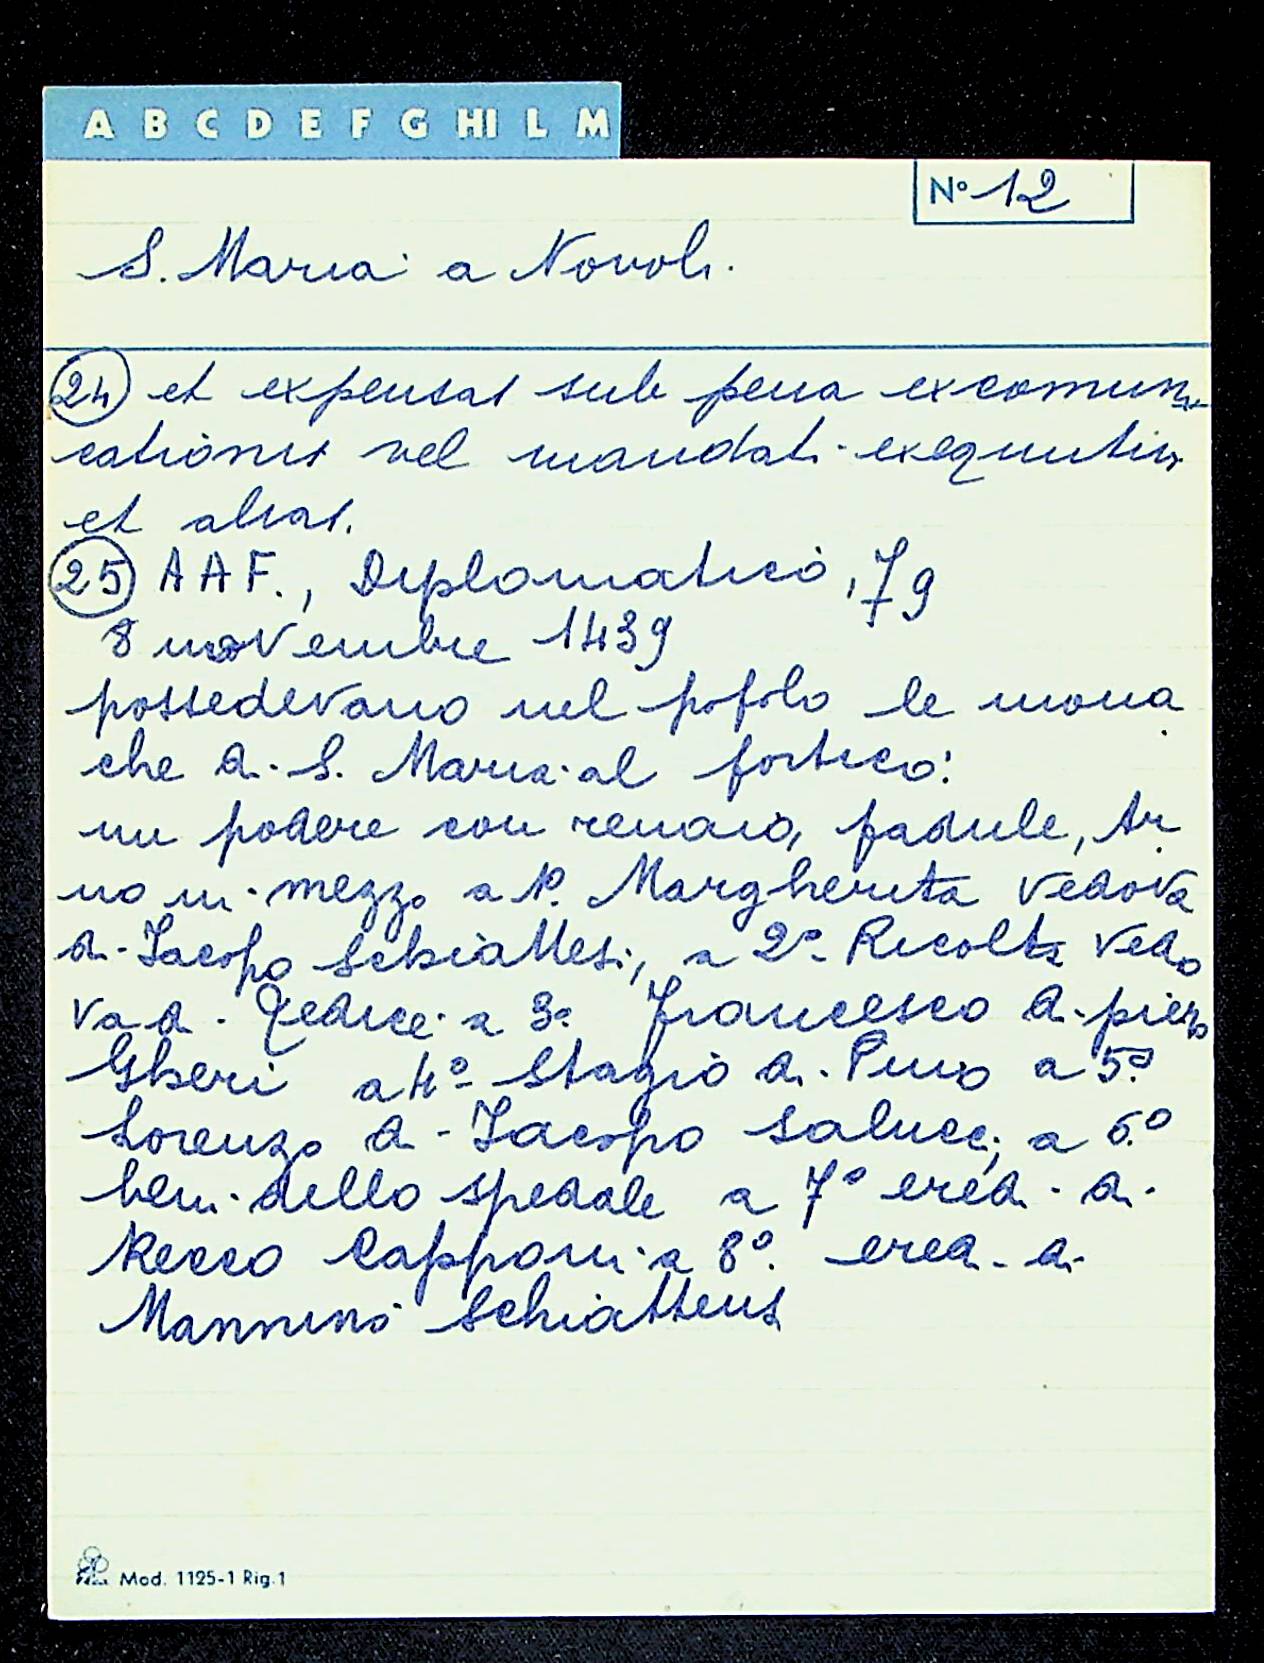 A B C D E F G HI L M
N° 12
S. Maria a Novoli.
24 et expensas sub pena excomuni
cationis vel mandati exequutin
et alias.
25 AAF., Diplomatico, 79
8 novembre 1439
possedevano nel popolo le mona
che di S. Maria al portico:
un podere con renaio, padule, Ar
no in mezzo a P. Margherita vedova
di Iacopo Schiattesi, a 2° Ricolta vedo
va di a 3° Francesco di piero
Gheri a 4° Stagio di Pino a 5°
Lorenzo di Iacopo Salucci a 6°
beni dello spedale a 7° eredi di
Recco Capponi a 8° eredi di
Mannino
Mod. 1125-1 Rig.1